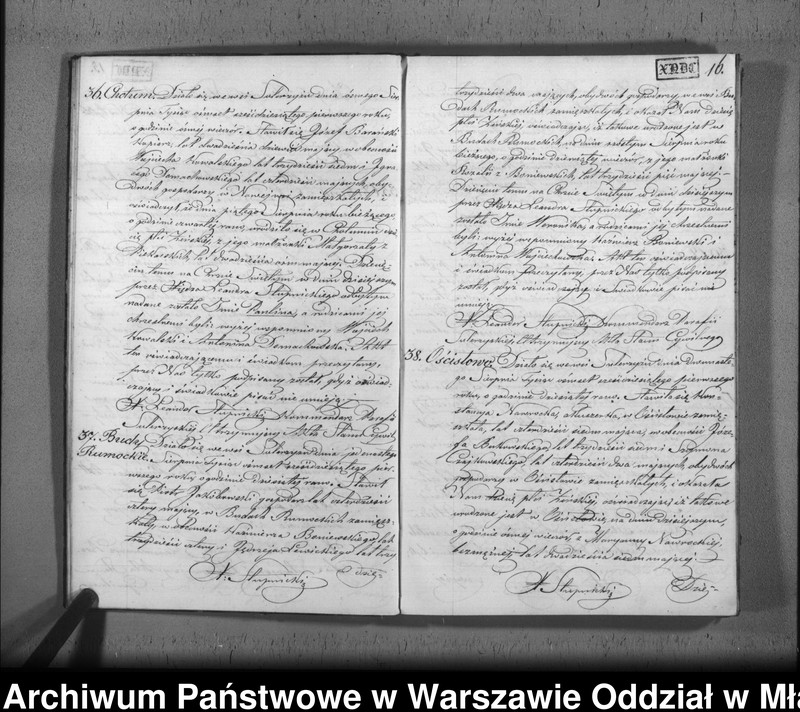 36. Chotum. Działo się we wsi Sulerzyżu dnia ósmego Sier-
pnia tysiąc ośmset sześćdziesiątego pierwszego roku,
o godzinie ósmej wieczór. Stawił się Józef Barański
lat dwadzieścia dziewięć mający w obecności
Wojciecha Kowalskiego lat trzydzieści siedm i
lat czterdzieści mających, oby-
dwóch gospodarzy w zamieszkałych, i
oświadczył iż dnia piątego Sierpnia roku bieżącego,
o godzinie czwartej rano, urodziło się w Chotumiu
płci żeńskiej z jego małżonki Małgorzaty z
lat dwadzieścia ośm mającej. Dziecię-
ciu temu na Chrzcie Świętym w dniu dzisiejszym
przez Księdza Leandra Słupnickiego odbytym
nadane zostało Imię Paulina, a rodzicami jej
chrzestnemi byli wyżej wspomniony Wojciech
Kowalski i Antonina Akt
ten oświadczającemu i świadkom przeczytany,
przez Nas tylko podpisany został, gdyż oświad-
czający i świadkowie pisać nie umieją.
X. Leander Słupnicki Kommendarz Parafii
Sulerzyskiej Utrzymujący Akta Stanu Cywil.
37. Budy Działo się we wsi Sulerzyżu dnia jedenastego
Rumockie. Sierpnia tysiąc ośmset sześćdziesiątego pier-
wszego roku, o godzinie dziesiątej rano. Stawił
się Piotr gospodarz lat czterdzieści
cztery mający, w Budach Rumockich zamiesz-
kały, w obecności Kaźmierza Boniewskiego, lat
trzydzieści cztery i Lewickiego lat trzy
X. Słupnicki Dzie-
XNDC
16.
trzydzieści dwa mających, obydwóch gospodarzy, we wsi Bu-
dach Rumockich zamieszkałych, i okazał Nam dziecię
płci żeńskiej, oświadczając, iż takowe urodzone jest w
Budach Rumockich, w dniu siódmym Sierpnia roku
bieżącego, o godzinie dziewiątej wieczór, z jego małżonki
Rozalii z Boniewskich, lat trzydzieści pięć mającej.
Dziecięciu temu na Chrzcie Świętym w dniu dzisiejszym
przez Księdza Leandra Słupnickiego odbytym nadane
zostało Imię Weronika, a rodzicami jej chrzestnemi
byli wyżej wspomniony Kaźmierz Boniewski i
Antonina Akt ten oświadczającemu
i świadkom przeczytany, przez Nas tylko podpisany
został, gdyż oświadczający i świadkowie pisać nie
umieją.
X. Leander Słupnicki Kommendarz Parafii
Sulerzyskiej, Utrzymujący Akta Stanu Cywilnego
38. Ościstowo. Działo się we wsi Sulerzyżu dnia dwunaste-
go Sierpnia tysiąc ośmset sześćdziesiątego pierwszego
roku, o godzinie dziesiątej rano. Stawiła się Kon-
stancya Nawrocka, akuszerka, w Ościsłowie zamie-
szkała, lat czterdzieści siedm mająca, w obecności Józe-
fa Bukowskiego, lat trzydzieści siedm i Szymona
Czajkowskiego, lat czterdzieści dwa mających, obydwóch
gospodarzy w Ościsłowie zamieszkałych, i okazała
Nam dziecię płci żeńskiej, oświadczając iż takowe
urodzone jest w Ościsłowie, na dniu dzisiejszym,
o godzinie ósmej wieczór, z Maryanny Nawrockiej
bezmężnej, lat dwadzieścia siedm mającej.
X. Słupnicki Dzie-
Archiwum Państwowe w Warszawie Oddział w Mła